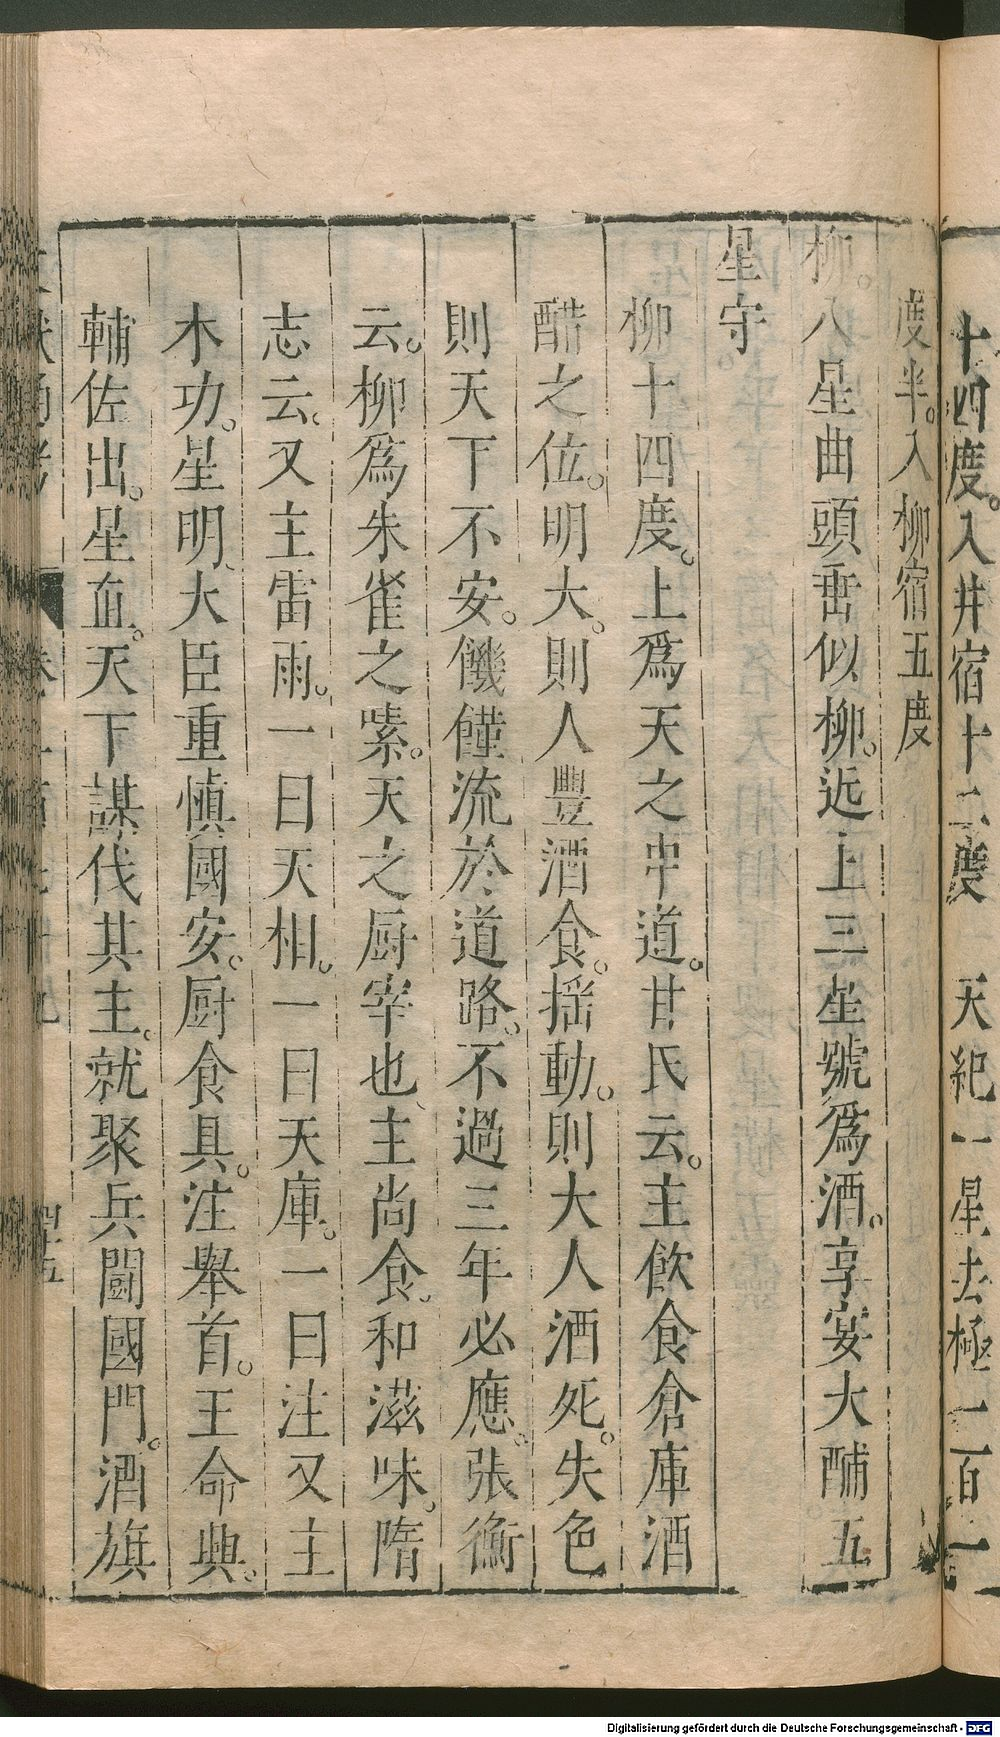 十四度。入井宿十二度　天紀一星去極一百一
度半。入柳宿五度
柳。八星曲頭垂似柳。近上三星號爲酒。享宴大酺五
星守。
柳十四度。上爲天之中道。甘氏云。主飲食倉庫酒
醋之位。明大。則人豐酒食。揺動。則大人酒死。失色
則天下不安。饑饉流於道路。不過三年必應。張衡
云。柳爲朱雀之嗉。天之厨宰也、主尚食。和滋味。隋
志云。又主雷雨。一曰天相。一曰天庫。一曰注又主
木功。星明、大臣重慎國安。厨食具。注舉首。王命興。
輔佐出。星直。天下謀伐其主。就聚兵鬪國門。酒旗
四十五
Digitalisierung gefördert durch die Deutsche Forschungsgemeinschaft - DFG